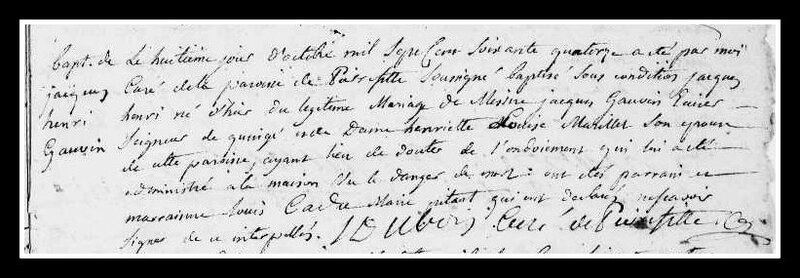 Bapt. de
jacques
henri
Gauvin
Le huitieme jour d'octobre mil Sept Cent Soixante quatorze a été par moi
Curé de la paroisse de Soussigné baptisé Sous condition jacques
henri né d'hier du legitime Mariage de Messire jacques Gauvin Ecuier
Seigneur de et de Dame henriette Louise Son epouse
de cette paroisse, ayant lieu de douter de l'ondoiement qui lui a été
administré à la maison Vu le danger de mort: ont été parrain et
marraine Louis Marie qui ont declaré ne scavoir
Signer de ce interpellés. J Dubois Curé de